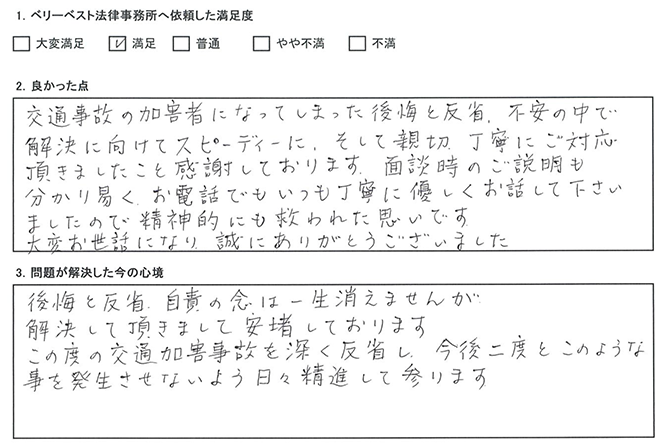 1. ベリーベスト法律事務所へ依頼した満足度
□ 大変満足 ☑ 満足 □ 普通 □ やや不満 □ 不満
2. 良かった点
交通事故の加害者になってしまった後悔と反省、不安の中で
解決に向けてスピーディーに、そして親切、丁寧にご対応
頂きましたこと感謝しております。面談時のご説明も
分かり易く、お電話でもいつも丁寧に優しくお話して下さい
ましたので精神的にも救われた思いです。
大変お世話になり、誠にありがとうございました
3. 問題が解決した今の心境
後悔と反省、自責の念は一生消えませんが
解決して頂きまして安堵しております
この度の交通加害事故を深く反省し、今後二度とこのような
事を発生させないよう日々精進して参ります